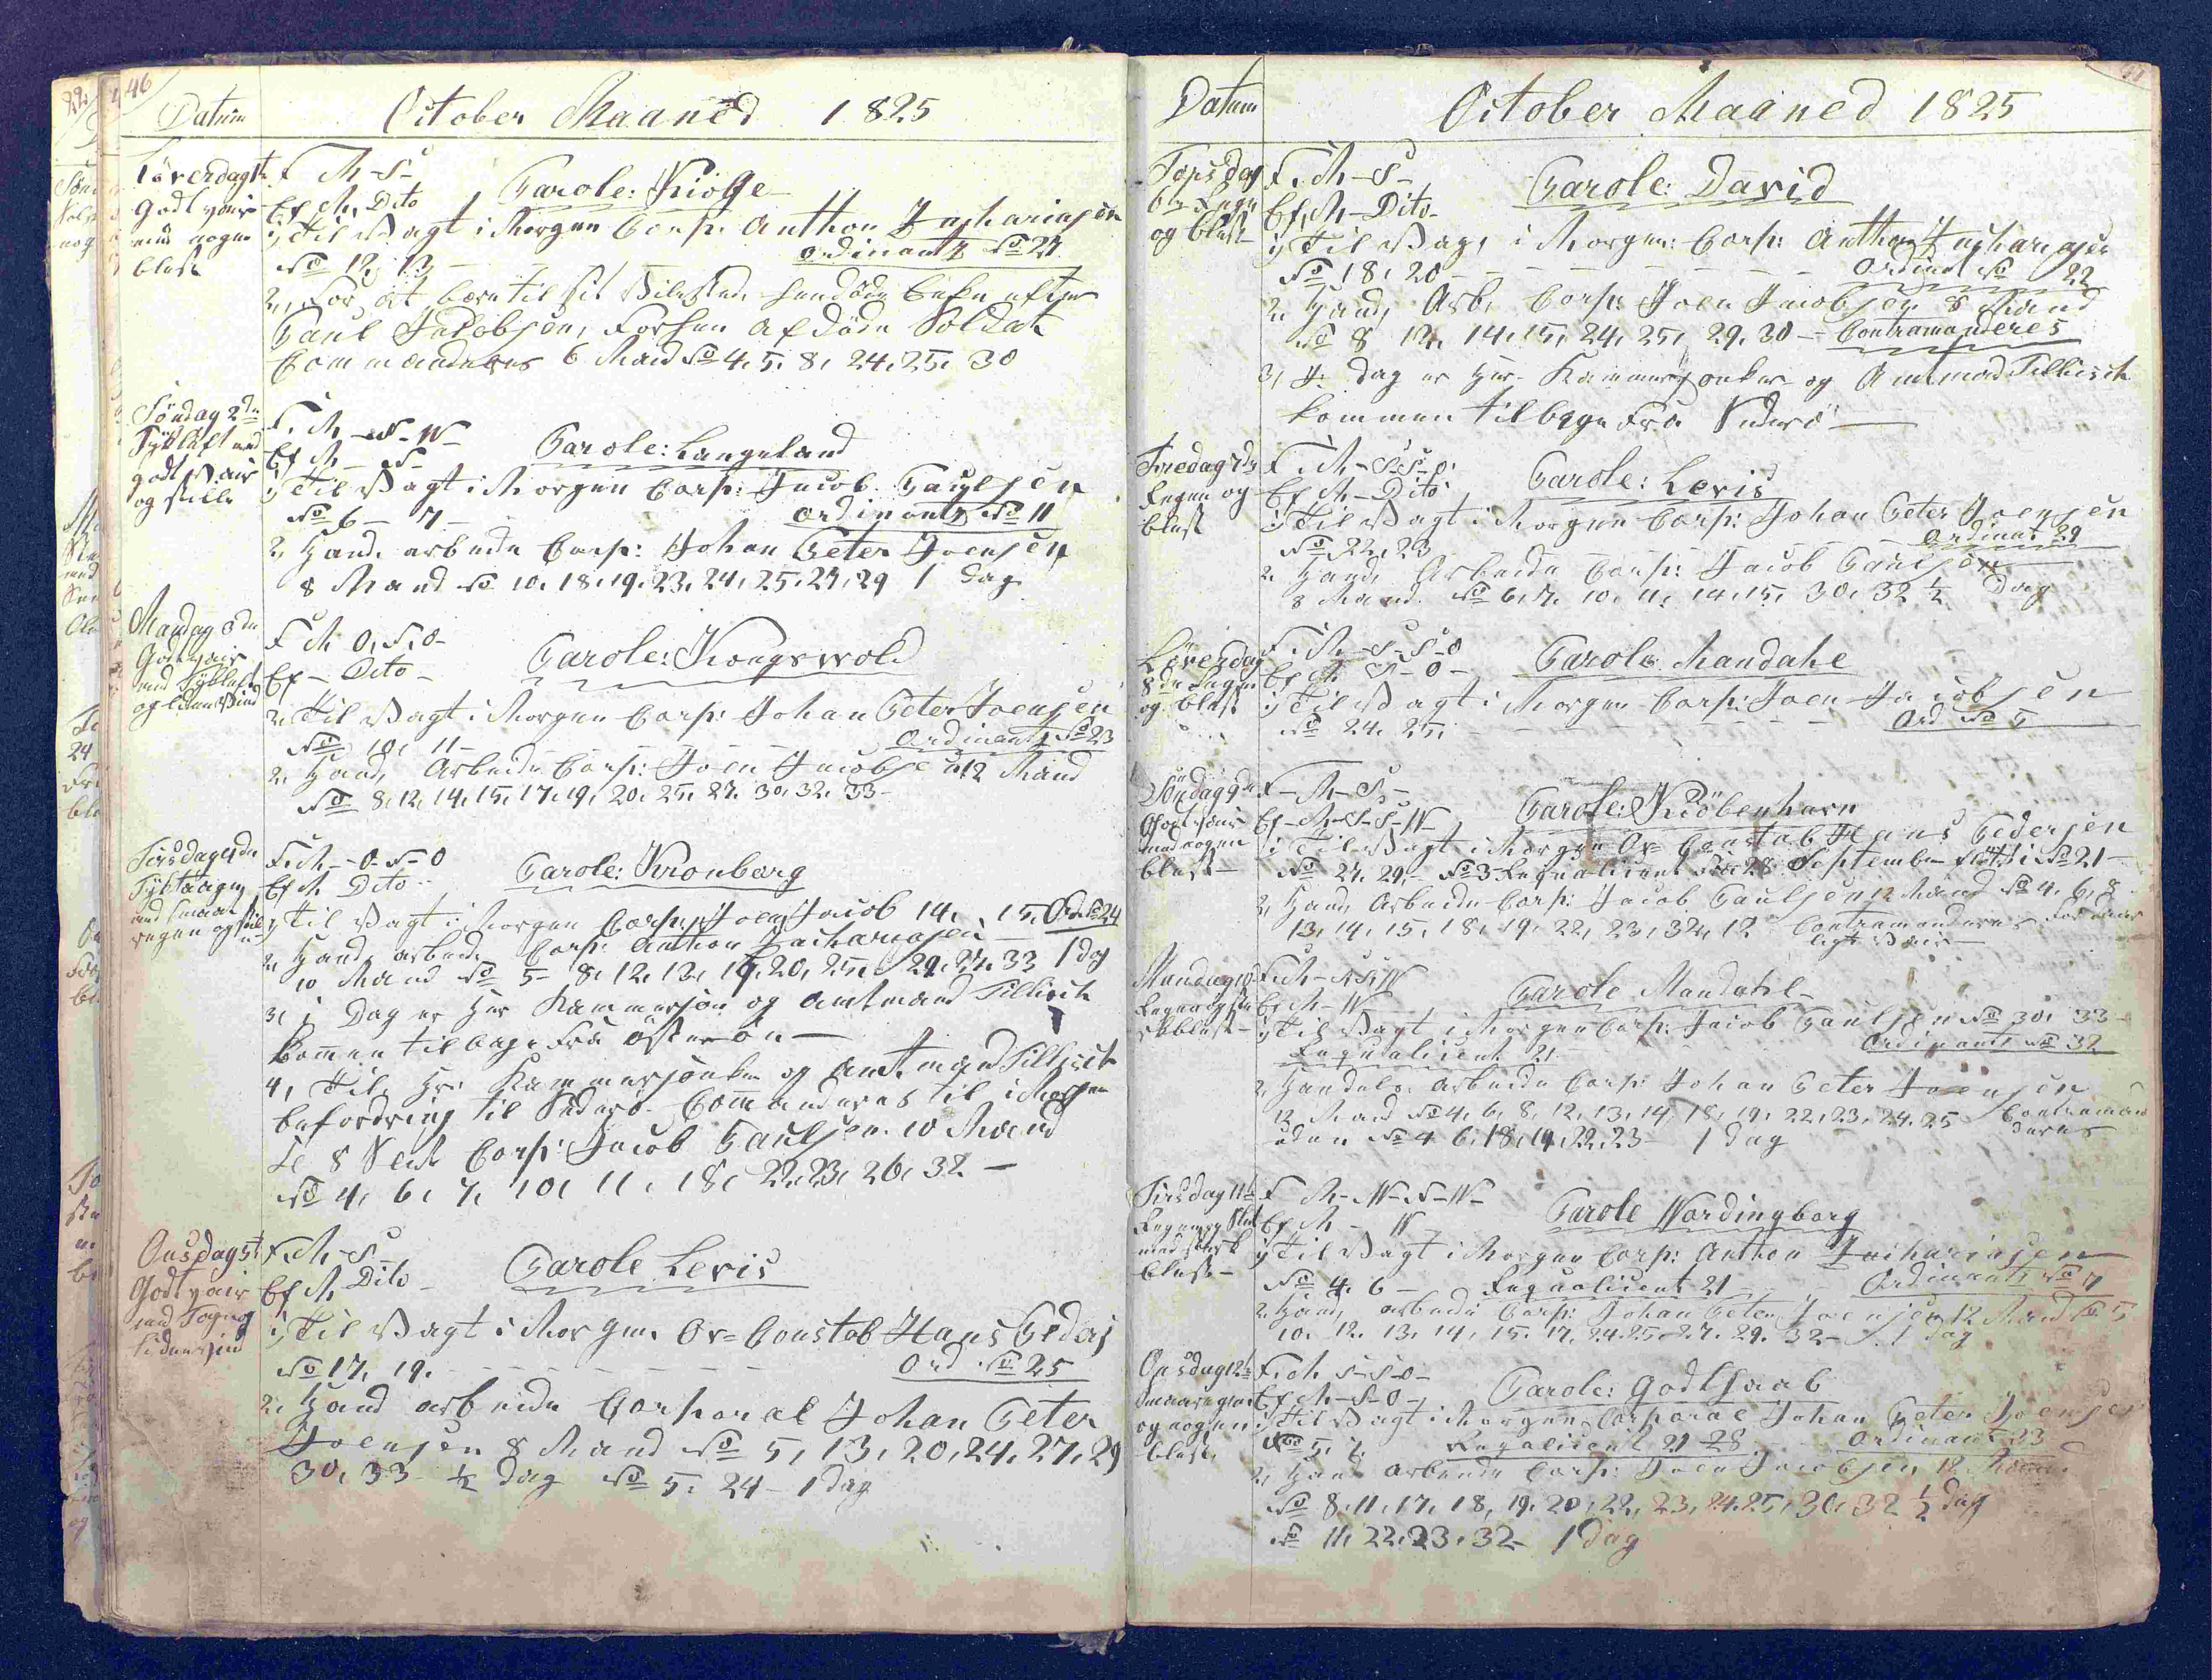 46
Datum
October Maaned 1825
Löverdag 1te
godt vair
med nogen
blæst
F M - S -
Ef M, Dito
Parole: Kiöge
1, Til Vagt i Morgen Corp: Anthon Zachariasen
No 12, 13 - Ordinantz No 27
2, For at bære til sit Hvilested
Paul Jakobsen, Forhen afdöde Soldat
Commanderes 6 Mand No 4, 5, 8, 24, 25, 30
Söndag 2den
Tyk luft med
godt Vair
og stille
F. M - N - W -
Ef M - N -
Parole: Langeland
1, Til Vagt i Morgen Corp: Jacob Paulsen
No 6 - 7 - Ordinantz No 11
2, Hand. arbeide Corp: Johan Peter Joensen
8 Mand No 10, 18, 19, 23, 24, 25, 27, 29 1 dag
Mandag 3de
Godt vair
med Tykluft
og liden Vind
F M O, N, O -
Ef - Dito -
Parole: Kongsvold
2, Til Vagt i Morgen Corp: Johan Peter Joensen
No 10, 11 - Ordinantz No 23
2, Hand, Arbeide Corp: Joen Jacobsen 12 Mand
No 8, 12, 14, 15, 17, 19, 20, 25, 27, 30, 32, 33 -
Tirsdag 4de
Tyktaagen
med smaat
regen og stille
F. M - O - N - O
Ef M Dito -
Parole: Kronborg
1, Til Vagt i Morgen Corp: Joen Jacob 14, 15, Ord No 24
2, Hand, arbeide Corp: Anthon Zachariasen
10 Mand No 5 - 8, 12, 13, 19, 20, 25, 29, 27, 33 1 dag
3, i Dag er Her Kammerjon og Amtmand Tillisch
kommen tilbage Fra Österöe -
4, Til Hr: Kammerjonker og Amtmand Tillisch
befordring til Suderö. Commanderes til i Morgen
Kl 8 Corp: Jacob Paulsen 10 Mand
No 4, 6, 7, 10, 11, 18, 22, 23, 26, 32 -
Onsdag 5te
Godt vair
med Taage og
liden vind
F. M - S -
Ef M Dito -
Parole Levis
1, Til Vagt i Morgen Ov= Constab Hans Peders
No 17, 19. - Ord No 25
2, Hand arbeide Corporal Johan Peter
Joensen 8 Mand No 5, 13, 20, 24, 27, 29
30, 33 - ½ dag No 5, 24 - 1 dag
Datum
October Maaned 1825
Torsdag
6te Regn
og blæst
F. M - S -
Ef, M - Dito -
Parole: David
1, Til Vagt i Morgen: Corp: Anthon Zachariasen
No 18, 20 - Ordinat No 22
2, Hand, Arb, Corp: Joen Jacobsen 8 Mand
No 8 12, 14, 15, 24, 25, 29, 30 - Contramanderes
3, I dag er Her Kammerjonker og Amtmand Tillisch
kommen tilbage Fra Suderö -
Fredag 7de
Regen og
blæst
F. M - S - S - O
Ef M - Dito
Parole: Levis
1, Til Vagt i Morgen Corp: Johan Peter Joensen
No 22, 23 Ordinat 29
2, Hand, Arbeide Corp: Jacob Paulsen
8 Mand No 6, 7, 10, 11, 14, 15, 30, 32 ½ Dag
Löverdag
8de Regen
og blæst
F. M - S - S - O
Ef M S - O -
Parole: Mandahl
1, Til Vagt i Morgen Corp: Joen Jacobsen
No 24, 25, Ord No 5
Söndag 9de
Godt vair
med nogen
blæst -
F - M - S -
Ef - M - S - S - W
Parole: Kiöbenhavn
1, Til Vagt i Morgen Ov= Constab Hans Pedersen
No 27, 29, - No 3 Reqvalicent Fra 28 September flöt i No 21 -
2, Hand, Arbeide Corp: Jacob Paulsen 12 Mand No 4, 6, 8
13, 14, 15, 18, 19, 22, 23, 32, 12 Contramanderes For
ligt Vair -
Mandag 10de
F. M - S, S, W
Ef M - W -
Parole Mandahl -
1, Til Vagt i Morgen Corp: Jacob Paulsen No 30, 33 -
Reqvalicent 21 - Ordinants No 32
2, Handels arbeide Corp: Johan Peter Joensen
12 Mand No 4, 6, 8, 12, 13, 14, 18, 19, 22, 23, 24, 25 Contraman
uden No 4 6, 18, 14, 22, 23 - 1 dag deres
Tirsdag 11te
Regen og Slud
med stærk
blæst -
F M - W - N - W -
Ef M - W -
Parole Wordingborg
1, Til Vagt i Morgen Corp: Anthon Zachariasen
No 4, 6 - Reqvalicent 21 - Ordinants No 7
2, Hand, arbeide Corp: Johan Peter Joensen 12 Mand No 5
10, 12, 13, 14, 15, 17, 24, 25, 27, 29, 32 - 1 dag
Onsdag 12te
Smaaregen
og nogen
blæst
F. M S - S - O -
Ef. M - S - O -
Parole: Godthaab
1, Til Vagt i Morgen Corporal Johan Peter Joensen
No 5, 7, Reqvalicent 21 28 Ordinants 23
2, Hand arbeide Corp: Joen Jacobsen 12 Mand
No 8, 11, 17, 18, 19, 20, 22, 23, 24, 25, 30, 32 ½ dag
No 11, 22, 23, 32 - 1 dag